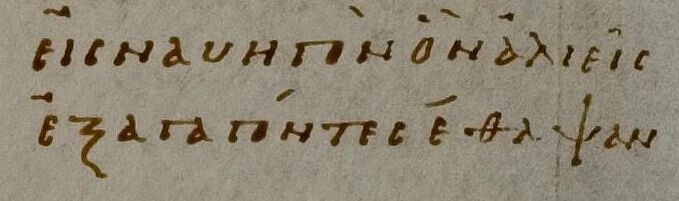 εἰς ναυηγὸν ὃν ἁλιεῖς
ἐξαγαγόντες ἔθαψαν